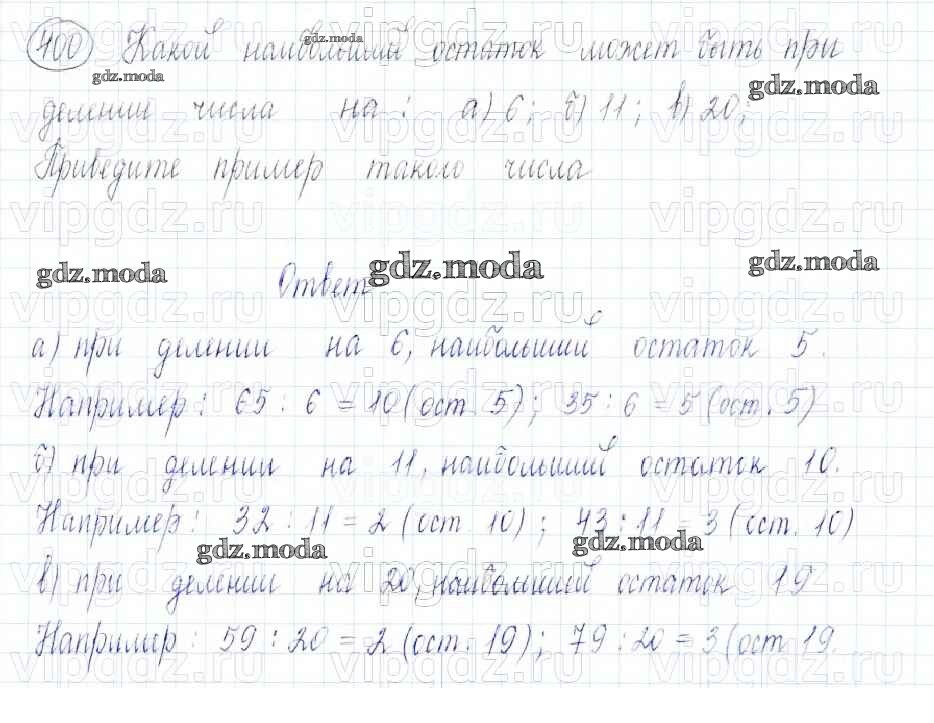 400 Какой наибольший остаток может быть при
gdz.moda
gdz.moda
делении числа на: а) 6; б) 11; в) 20;
Приведите пример такого числа
gdz.moda gdz.moda gdz.moda
Ответ
а) при делении на 6, наибольший остаток 5.
Например: 65 : 6 = 10 (ост. 5); 35 : 6 = 5 (ост. 5)
б) при делении на 11, наибольший остаток 10.
Например: 32 : 11 = 2 (ост. 10); 43 : 11 = 3 (ост. 10)
gdz.moda gdz.moda
в) при делении на 20, наибольший остаток 19
Например: 59 : 20 = 2 (ост. 19); 79 : 20 = 3 (ост 19.
vipgdz.ru vipgdz.ru vipgdz.ru